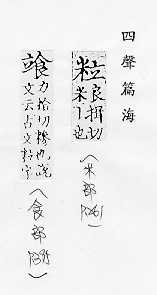 四聲篇海
粒
良揖切
米丨也
(米部
P261)
力拾切糝也說
文云古文粒字
(食部
P395)